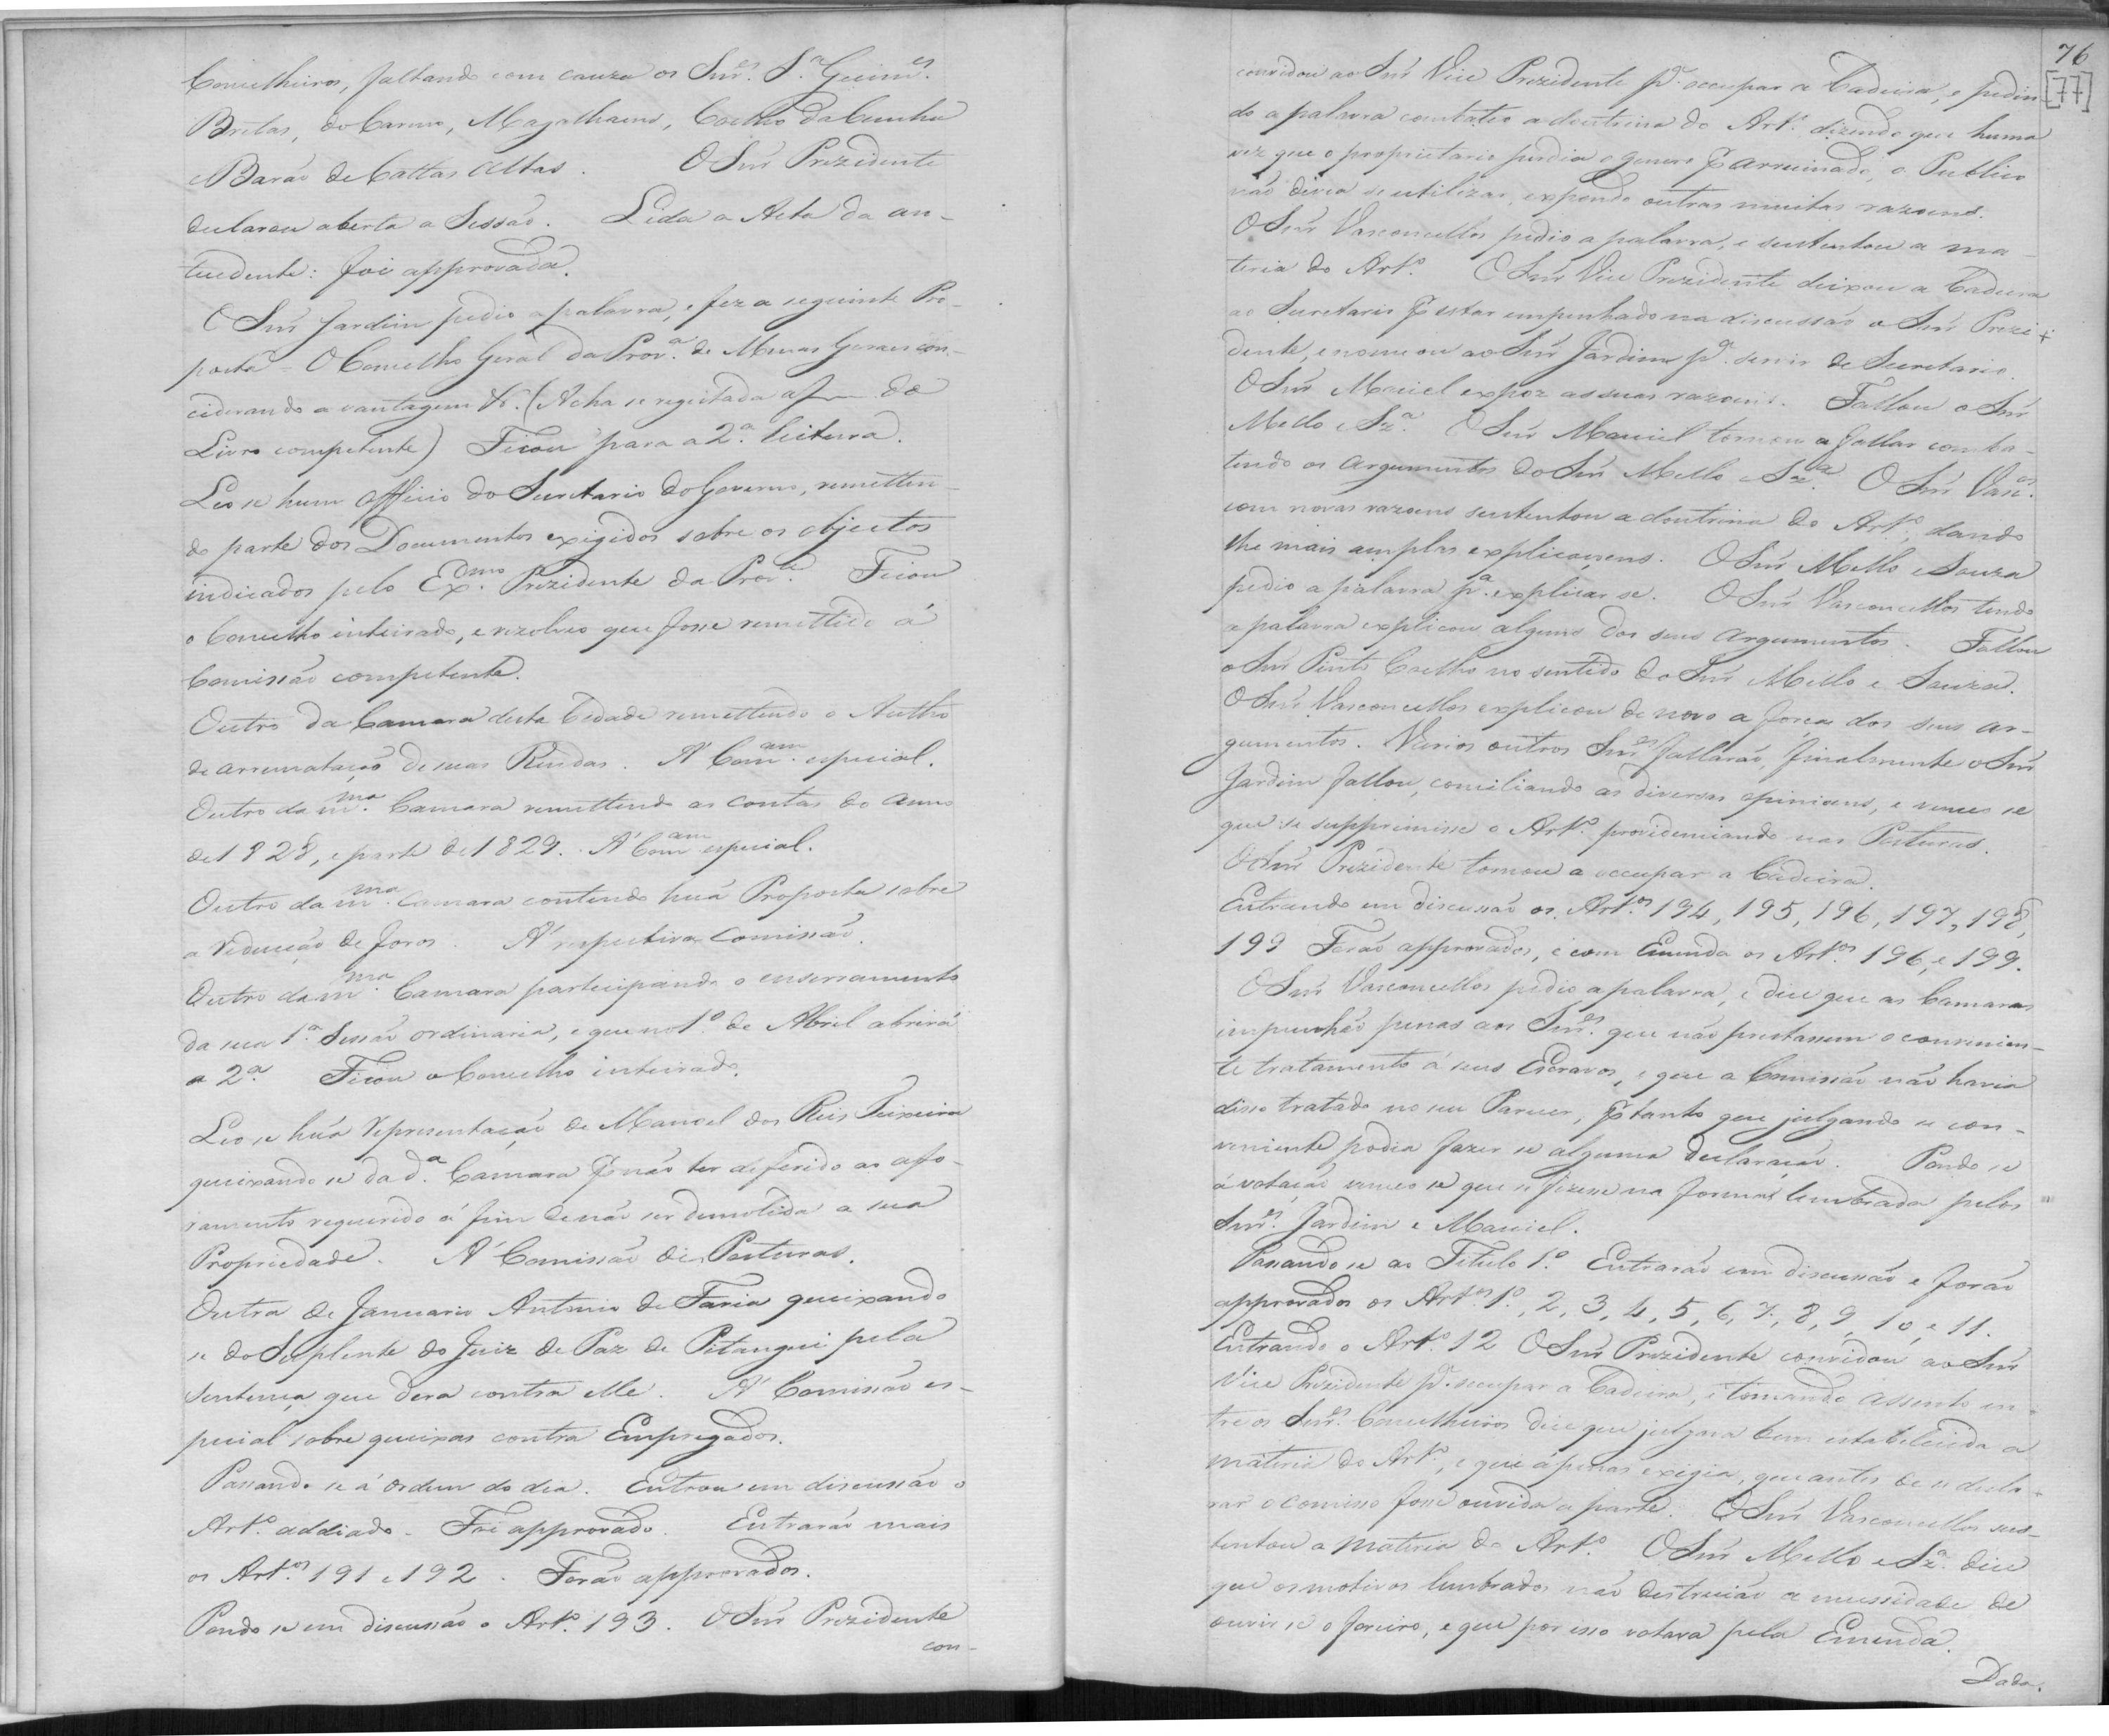 Conselheiros, faltando com cauza os Snr.es S.a Guim.es
Bretas, do Carmo, Magalhaens, Coelho da Cunha
Barão de Cattas altas. O Snr Prezidente
declarou aberta a Sessão. Lida a Acta da an-
tecedente: foi approvada.
O Snr Jardim pedio a palavra, e fez a seguinte Pro-
posta = O Conselho Geral da Prov.a de Minas Geraes con-
ciderando a vantagem &. (Acha se regeitada a f— do
Livro competente) Ficou para a 2.a leitura.
Leo se hum officio do Secretario do Governo, remetten-
do parte dos Documentos exigidos sobre os objectos
indicados pelo Ex.mo Prezidente da Prov.a Ficou
o Conselho inteirado, e rezolveo que fosse remettido á
Comissão competente.
Outro da Camara desta Cidade remettendo o Autho
de arrematação de suas Rendas. A' Com.am especial.
Outro da m.ma Camara remettendo as contas do anno
de 1828, e parte de 1829. A' Com.am especial.
Outro da m.ma Camara contendo huã Proposta sobre
a reducção de foros. A' respectiva Comissão.
Outro da m.ma Camara participando o enserramento
da sua 1.a Sessão ordinaria, e que no 1.o de Abril abrirá
a 2.a Ficou o Conselho inteirado.
Leo se huã representação de Manoel dos Reis Teixeira
queixando se da d.a Camara p não ter deferido ao afo-
ramento requerido á fim de não ser demolida a sua
Propriedade. A' Comissão de Posturas.
Outra de Januario Antonio de Faria queixando
se do Suplente do Juiz de Paz de Pitangui pela
Sentença que dera contra elle. A' Comissão es-
pecial sobre queixas contra Empregados.
Passando se á ordem do dia. Entrou em discussão o
Art.o addiado. Foi approvado. Entrarão mais
os Art.os 191 e 192. Forão approvados.
Pondo se em discussão o Art.o 193. O Snr Prezidente
con-
76
[77]
convidou ao Snr Vice Prezidente p.a occupar a Cadeira, e pedin-
do a palavra combateo a doutrina do Art.o dizendo que huma
vez que o proprietario perdia o genero p arruinado, o Publico
não devia se utilizar, expondo outras muitas razoens.
O Snr Vasconcellos pedio a palavra, e sustentou a ma-
teria do Art.o O Snr Vice Prezidente deixou a Cadeira
ao Secretario p estar empenhado na discussão o Snr Prezi-
dente, e nomeou ao Snr Jardim p.a servir de Secretario.
O Snr Maciel expoz as suas razoens. Fallou o Snr
Mello e Sz.a O Snr Maciel tornou a fallar comba-
tendo os argumentos do Snr Mello e Sz.a O Snr Vasc.os
com novas razoens sustentou a doutrina do Art.o, dando
lhe mais amplas explicaçoens. O Snr Mello e Souza
pedio a palavra p.a explicar se. O Snr Vasconcellos tendo
a palavra explicou alguns dos seus argumentos. Fallou
o Snr Pinto Coelho no sentido do Snr Mello e Souza.
O Snr Vasconcellos explicou de novo a força dos seus ar-
gumentos. Varios outros Snr.es fallarão, finalmente o Snr
Jardim fallou, conciliando as diversas opinioens, e venceo se
que se supprimisse o Art.o providenciando nas Posturas.
O Snr Prezidente tornou a occupar a Cadeira.
Entrando em discussão os Art.os 194, 195, 196, 197, 198,
199 Forão approvados, e com Emenda os Art.os 196, e 199.
O Snr Vasconcellos pedio a palavra, e dice que as Camaras
impunhão penas aos Snr.es que não prestassem o convenien-
te tratamento á seus Escravos, e que a Comissão não havia
disso tratado no seu Parecer, p tanto que julgando se con-
veniente podia fazer se alguma declaração. Pondo se
á votação venceo se que se fizesse na forma lembrada pelos
Snr.es Jardim e Maciel.
Passando se ao Titulo 1.o Entrarão em discussão e forão
approvados os Art.os 1.o, 2, 3, 4, 5, 6, 7, 8, 9, 10, e 11.
Entrando o Art.o 12 O Snr Prezidente convidou ao Snr
Vice Prezidente p.a occupar a Cadeira, e tomando assento en-
tre os Snr.es Conselheiros dice que julgava bem estabelecida a
materia do Art.o, e que ápenas exigia, que antes de se decla-
rar o comisso fosse ouvida a parte. O Snr Vasconcellos sus-
tentou a materia do Art.o O Snr Mello e Sz.a dice
que os motivos lembrados não destruião a necessidade de
ouvir se o foreiro, e que por isso votava pela Emenda.
Dada.